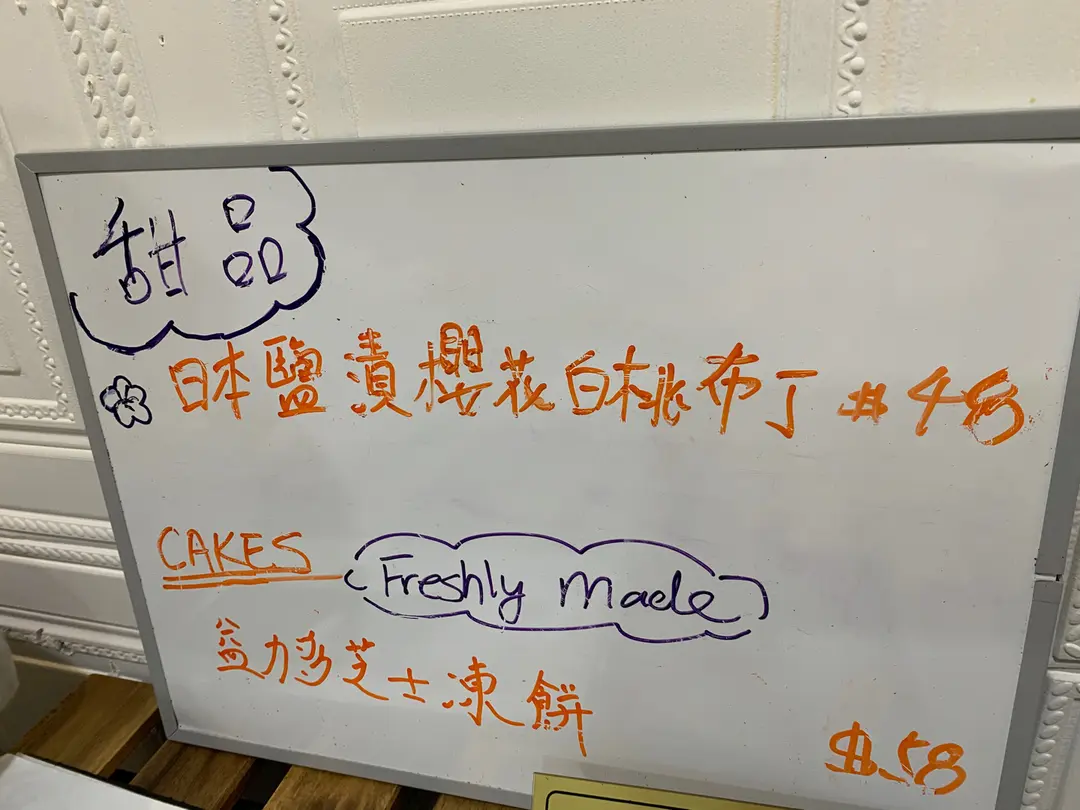 甜品
日本鹽漬櫻花白桃布丁 $48
CAKES Freshly Made
益力多芝士凍餅
$58